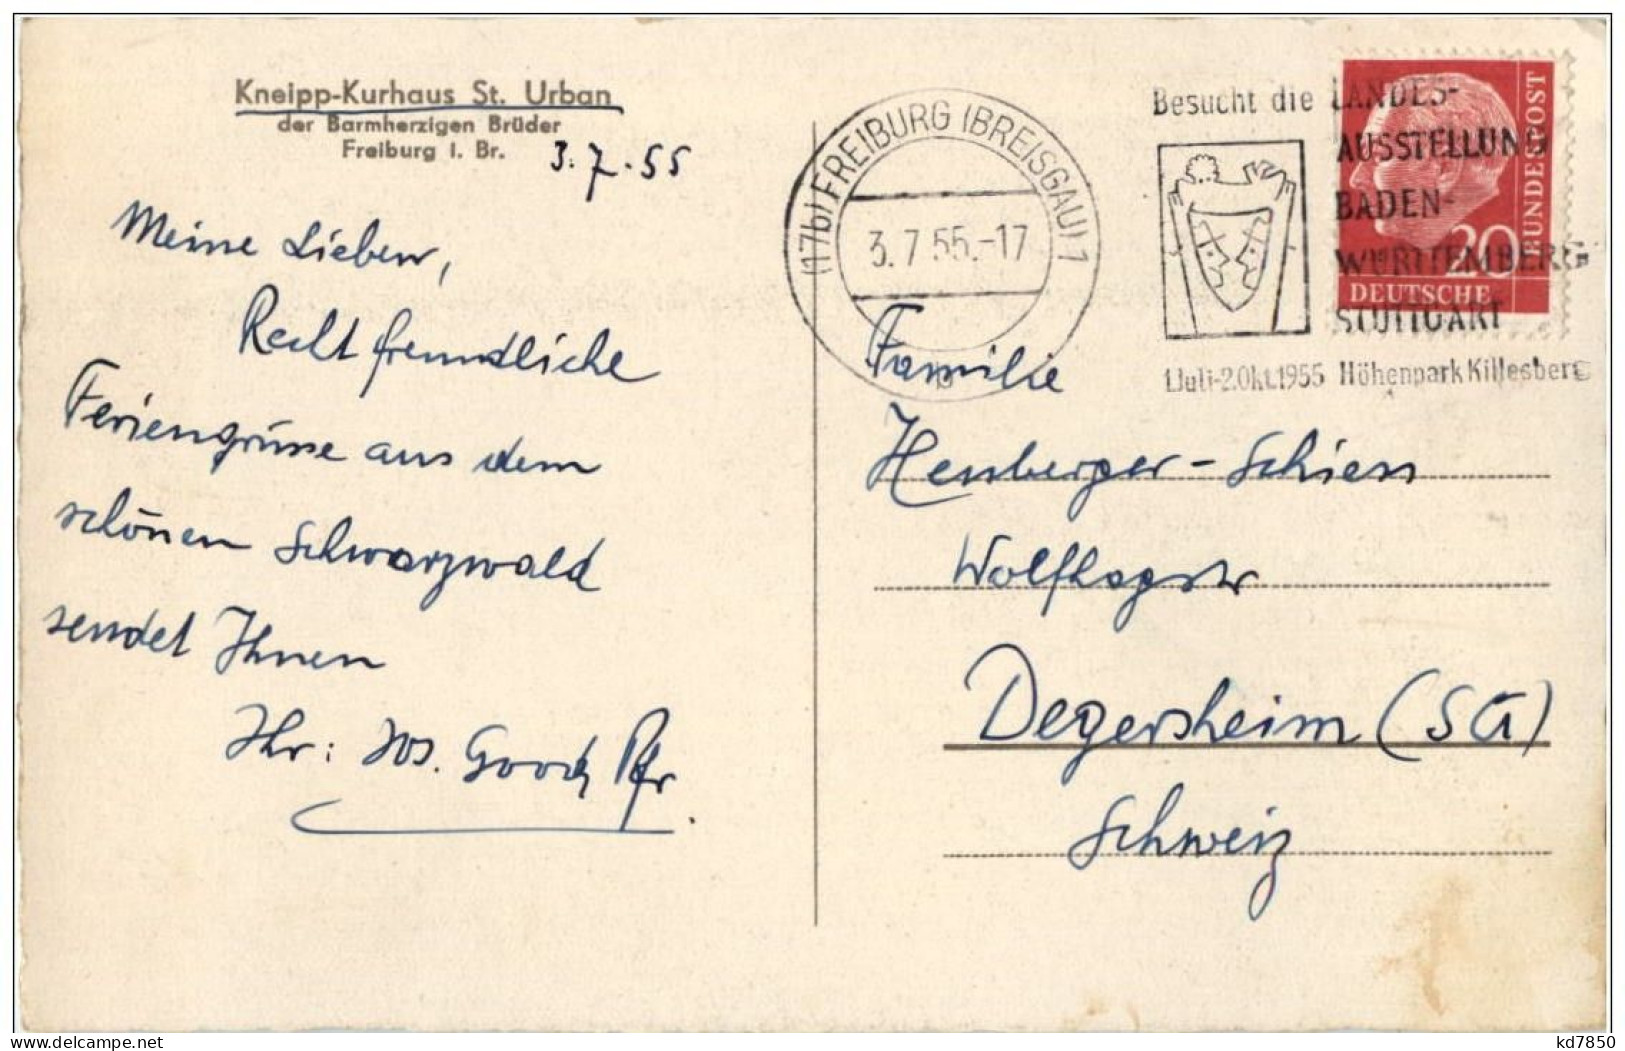 Kneipp-Kurhaus St. Urban
der Barmherzigen Brüder
Freiburg i. Br.
3.7.55
Meine Lieben,
Recht freundliche
Feriengrüsse aus dem
schönen Schwarzwald
sendet Ihnen
Ihr: Jos. Good, Pfr.
(17b) FREIBURG (BREISGAU) 1
3.7.55.-17
b
Besucht die LANDES-
AUSSTELLUNG
BADEN-
WÜRTTEMBERG
STUTTGART
1.Juli-2.Okt.1955 Höhenpark Killesberg
20
DEUTSCHE
BUNDESPOST
Familie
Henberger-Schiess
Wolfhagstr
Degersheim (SG)
Schweiz
kd7850